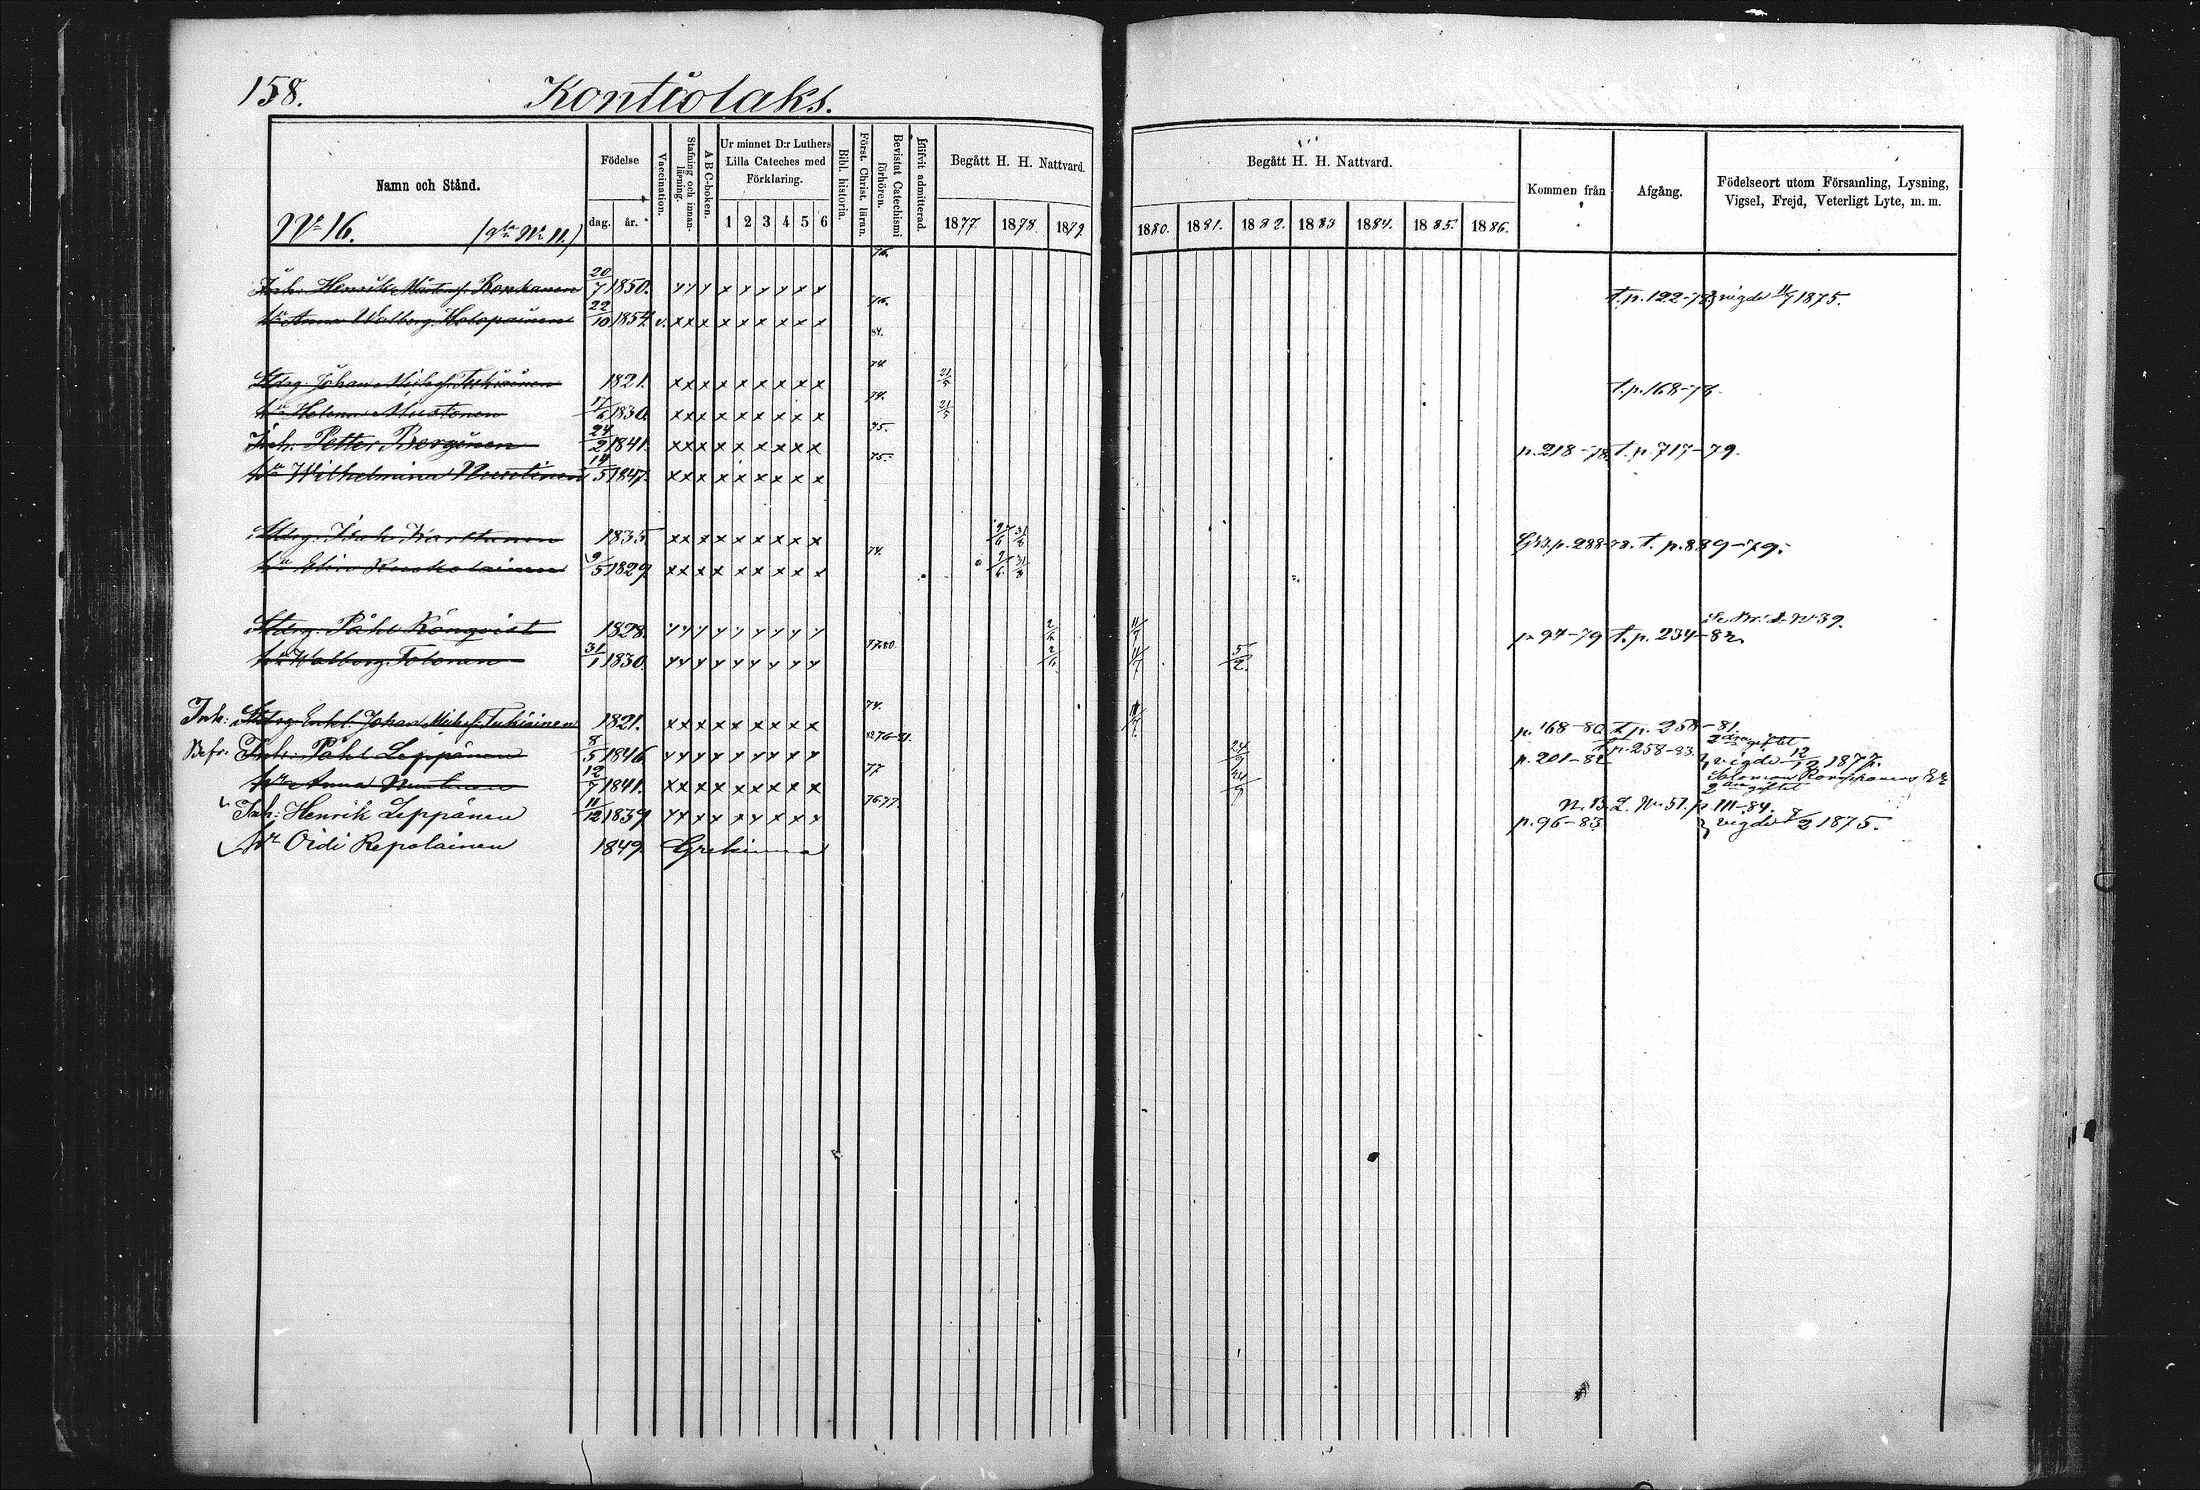 158.
Kontiolaks.
Namn och Stånd.
Födelse
dag.
år.
Vaccination.
Stafning och innan-läsning.
A B C-boken.
Ur minnet D:r Luthers
Lilla Cateches med
Förklaring.
1 2 3 4 5 6
Bibl. historia.
Först. Christ. läran.
Bevistat Catechismi förhören.
Blifvit admitterad.
Begått H. H. Nattvard.
1877. 1878. 1879.
Begått H. H. Nattvard.
1880. 1881. 1882. 1883 1884. 1885. 1886.
Kommen från
Afgång.
Födelseort utom Församling, Lysning,
Vigsel, Frejd, Veterligt Lyte, m. m.
No 16. (gla No 11.)
76.
Inh. Henrik 20/7 1850. t.p. 122-78 vigde 11/7 1875.
76.
hu Anna Walborg Holopainen 22/10 1854. v.
84.
74.
Stdrg. Johan Tukiainen 1821. 21/5 t.p. 168-78.
74.
hu Helena Mustonen 17/6 1830. 21/5
75.
Inh. Petter Berginen 24/2 1841. p. 218-78. t.p. 717-79.
75.
hu Wilhelmina 14/5 1847.
Stdrg. Karttunen 1835. 9/6 31/8 p. 288-78. t. p. 889-79.
74.
hu Elin 9/5 1829 9/6 31/8
Stdrg. Påhl Rönqvist 1828. 2/6 11/7 p. 94-79 t. p. 234-82. No 39.
77.80.
hu Walborg Tolonen 31/1 1830. 2/6 11/7 5/2
74.
Inh. Stdrg. Enkl. Johan Mich:s. Tukiainen 1821. 11/7 p. 168-80. t.p. 258-81.
76-81.
2dra giftet
Befr. Inh. Påhl Leppänen 8/5 1846. 24/9 p. 201-82. t.p. 258-83. vigde 12/12 1877.
77
Salomon Romppanens Ek
hu Anna 12/7 1841. 24/9 2dra giftet
76.77.
Inh: Henrik Leppänen 11/12 1839 p. 96-83. N. B. L. No 51. p 111-84. vigde 7/2 1875.
hu Oidi Repolainen 1849. Grekinna